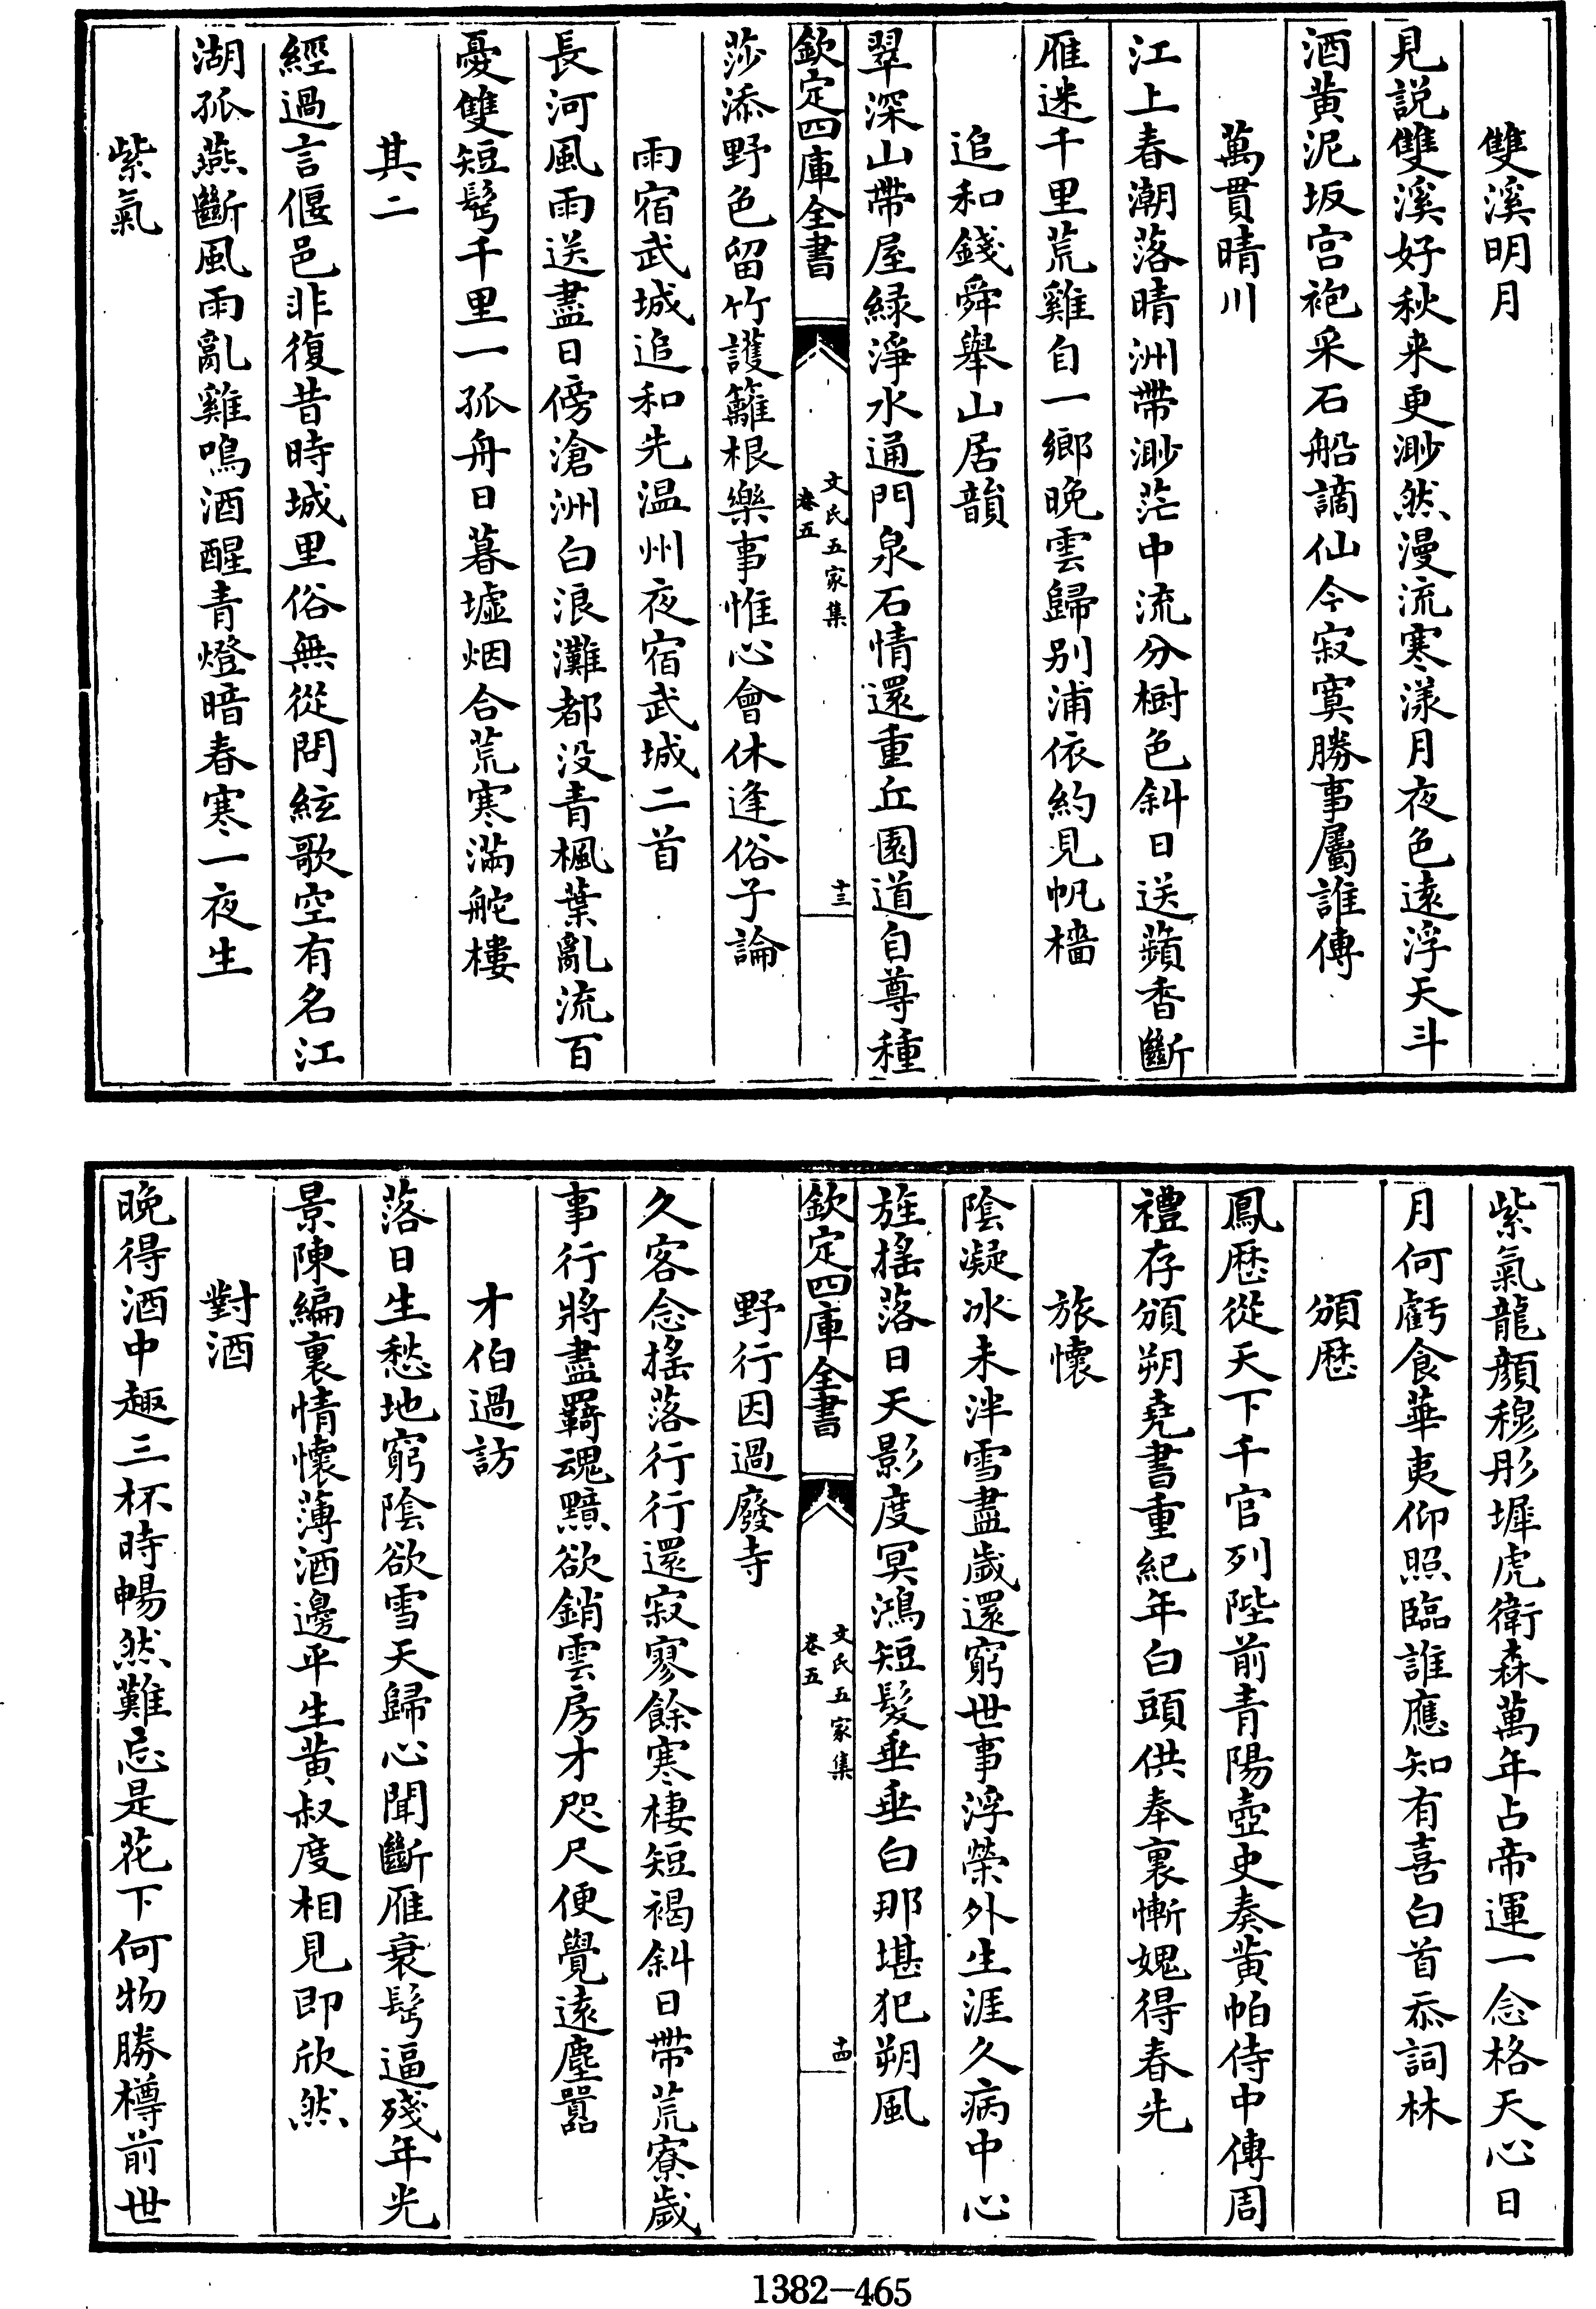 雙溪明月
見説雙溪好秋来更渺然漫流寒漾月夜色遠浮天斗
酒黄泥坂宫袍采石船謫仙今寂寞勝事屬誰傳
萬貫晴川
江上春潮落晴洲帶渺茫中流分樹色斜日送蘋香斷
雁迷千里荒雞自一鄉晚雲歸别浦依約見帆檣
追和錢舜舉山居韻
翠深山帶屋緑淨水通門泉石情還重丘園道自尊種
欽定四庫全書
文氏五家集
卷五
十三
莎添野色留竹護籬根樂事惟心會休逢俗子論
雨宿武城追和先温州夜宿武城二首
長河風雨送盡日傍滄洲白浪灘都没青楓葉亂流百
憂雙短髩千里一孤舟日暮墟烟合荒寒滿舵樓
其二
經過言偃邑非復昔時城里俗無從問絃歌空有名江
湖孤燕斷風雨亂雞鳴酒醒青燈暗春寒一夜生
紫氣
紫氣龍顔穆彤墀虎衛森萬年占帝運一念格天心日
月何虧食華夷仰照臨誰應知有喜白首忝詞林
頒厯
鳳厯從天下千官列陛前青陽壺史奏黄帕侍中傳周
禮存頒朔堯書重紀年白頭供奉裏慚媿得春先
旅懷
陰凝冰未泮雪盡歲還窮世事浮榮外生涯久病中心
旌摇落日天影度冥鴻短髮垂垂白那堪犯朔風
欽定四庫全書
文氏五家集
卷五
十四
野行因過廢寺
久客念摇落行行還寂寥餘寒棲短褐斜日帶荒寮歲
事行將盡羇魂黯欲銷雲房才咫尺便覺遠塵囂
才伯過訪
落日生愁地窮陰欲雪天歸心聞斷雁衰髩逼殘年光
景陳編裏情懷薄酒邊平生黄叔度相見即欣然
對酒
晚得酒中趣三杯時暢然難忘是花下何物勝樽前世
1382-465